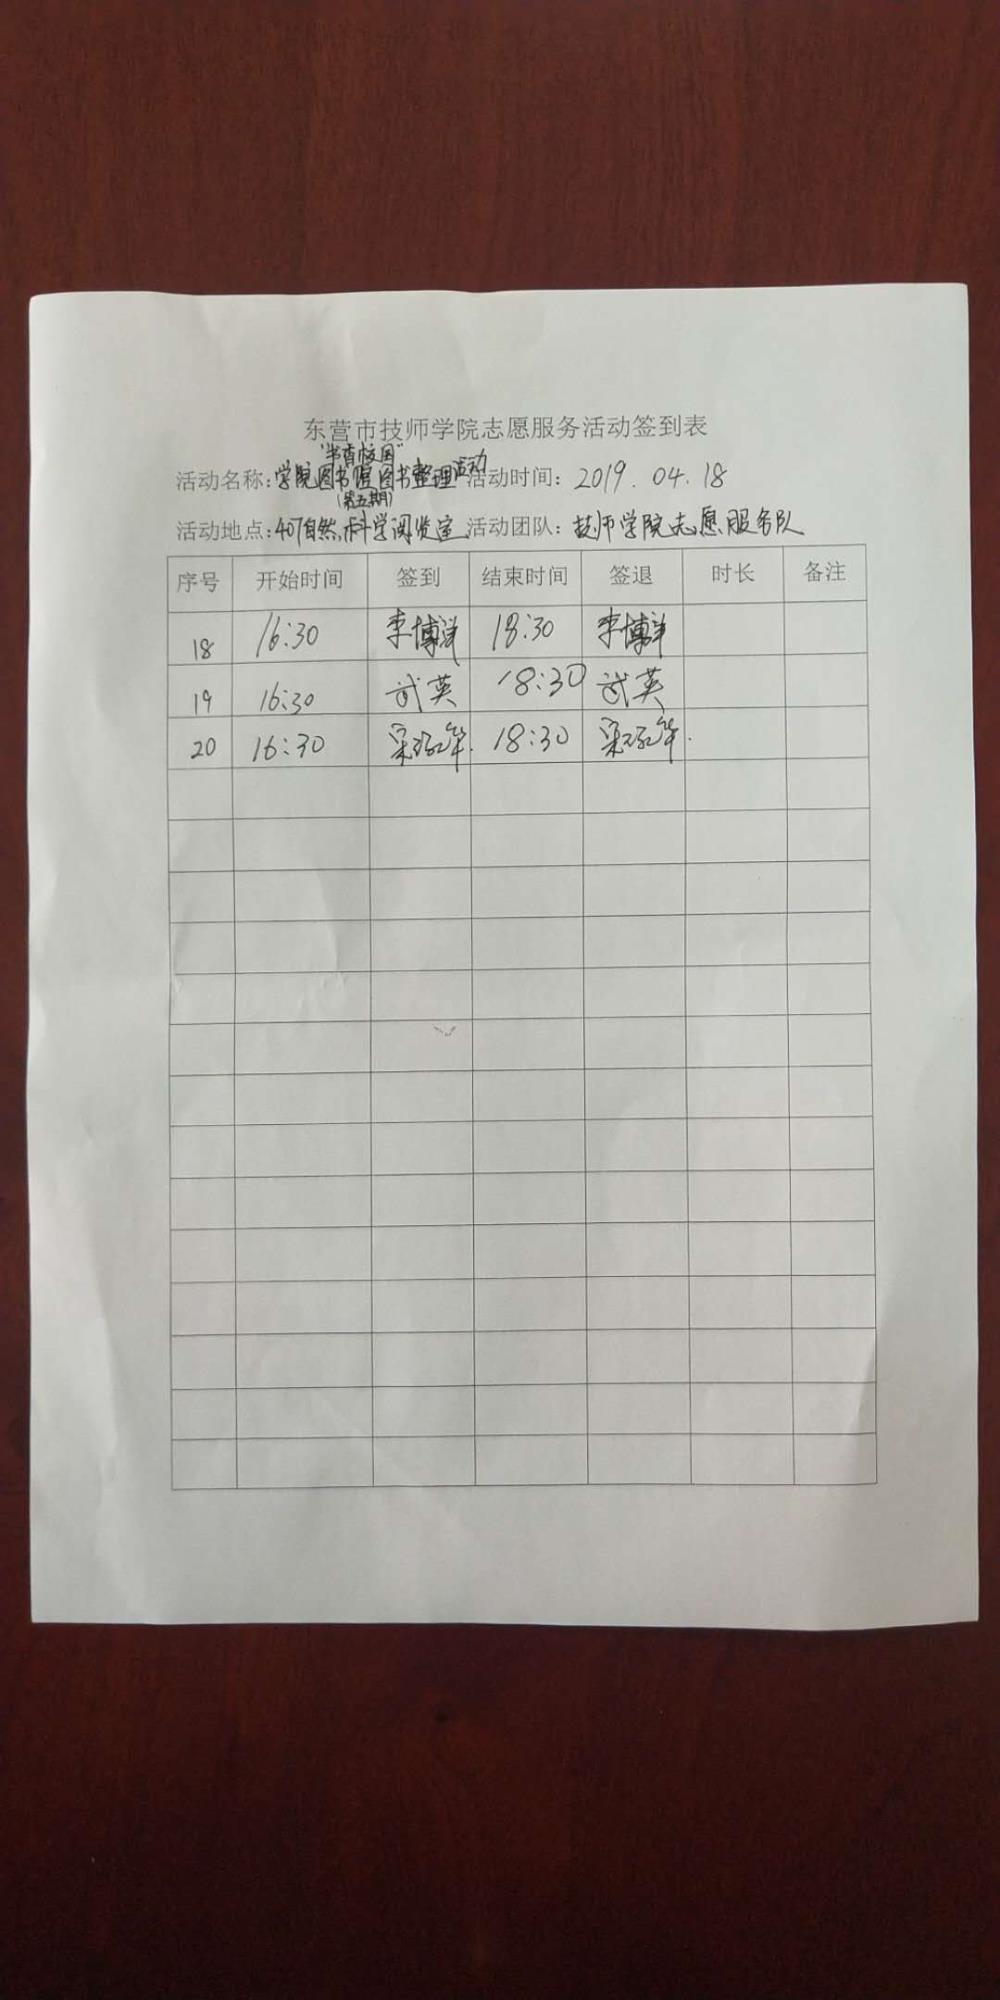 东营市技师学院志愿服务活动签到表
"书香校园"
活动名称:学院图书馆图书整理活动 活动时间: 2019.04.18
(第五期)
活动地点:407自然科学阅览室 活动团队: 技师学院志愿服务队
序号 开始时间 签到 结束时间 签退 时长 备注
18 16:30 李博洋 18:30 李博洋
19 16:30 武英 18:30 武英
20 16:30 18:30